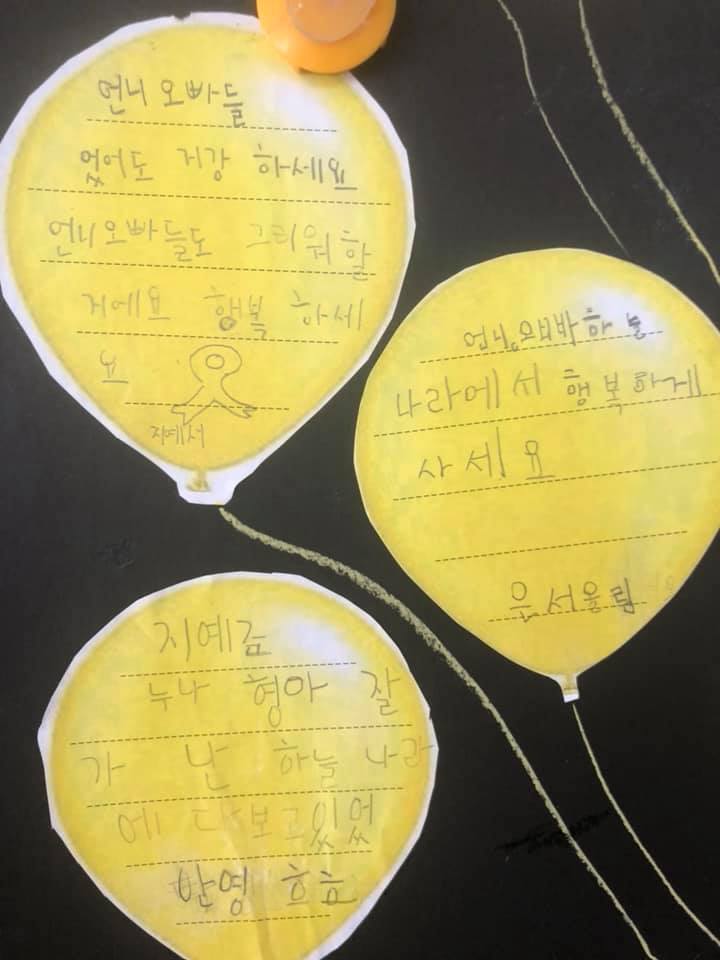 언니 오빠들
있어도 거강 하세요
언니오빠들도 그리워할
거에요 행복 하세
요
지예서
언니오빠하늘
나라에서 행복하게
사세요
은서올림
지예
누나 형아 잘
가 난 하늘 나라
에 다보고있었
안영 흐흐